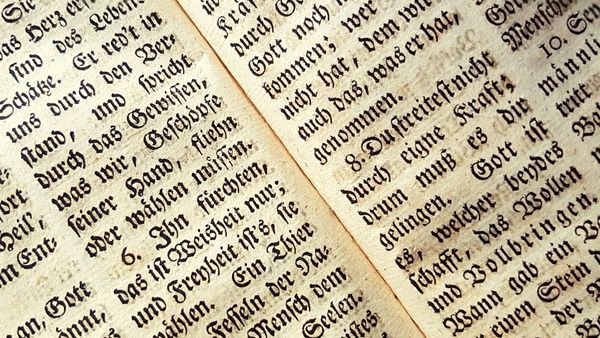 das Herz
ſind des Lebens
Schätze. Er red't in
uns durch den Ver-
ſtand, und ſpricht
durch das Gewiſſen,
was wir, Geſchöpfe
ſeiner Hand, fliehn
oder wählen müſſen.
6. Ihn fürchten,
das iſt Weisheit nur;
und Freyheit iſt's, ſie
wählen. Ein Thier
Feſſeln der Na-
Menſch dem
Seelen.
Heil,
Ent-
an, Gott
durch
Gott noch
kommen; wer
nicht hat, dem
auch das, was er hat,
genommen.
8. Du ſtreiteſt nicht
durch eigne Kraft;
drum muß es dir
gelingen. Gott iſt
es, welcher beydes
ſchafft, das Wollen
und Vollbringen.
Wann gab ein
einen Stein
der
10.
männli
tritt